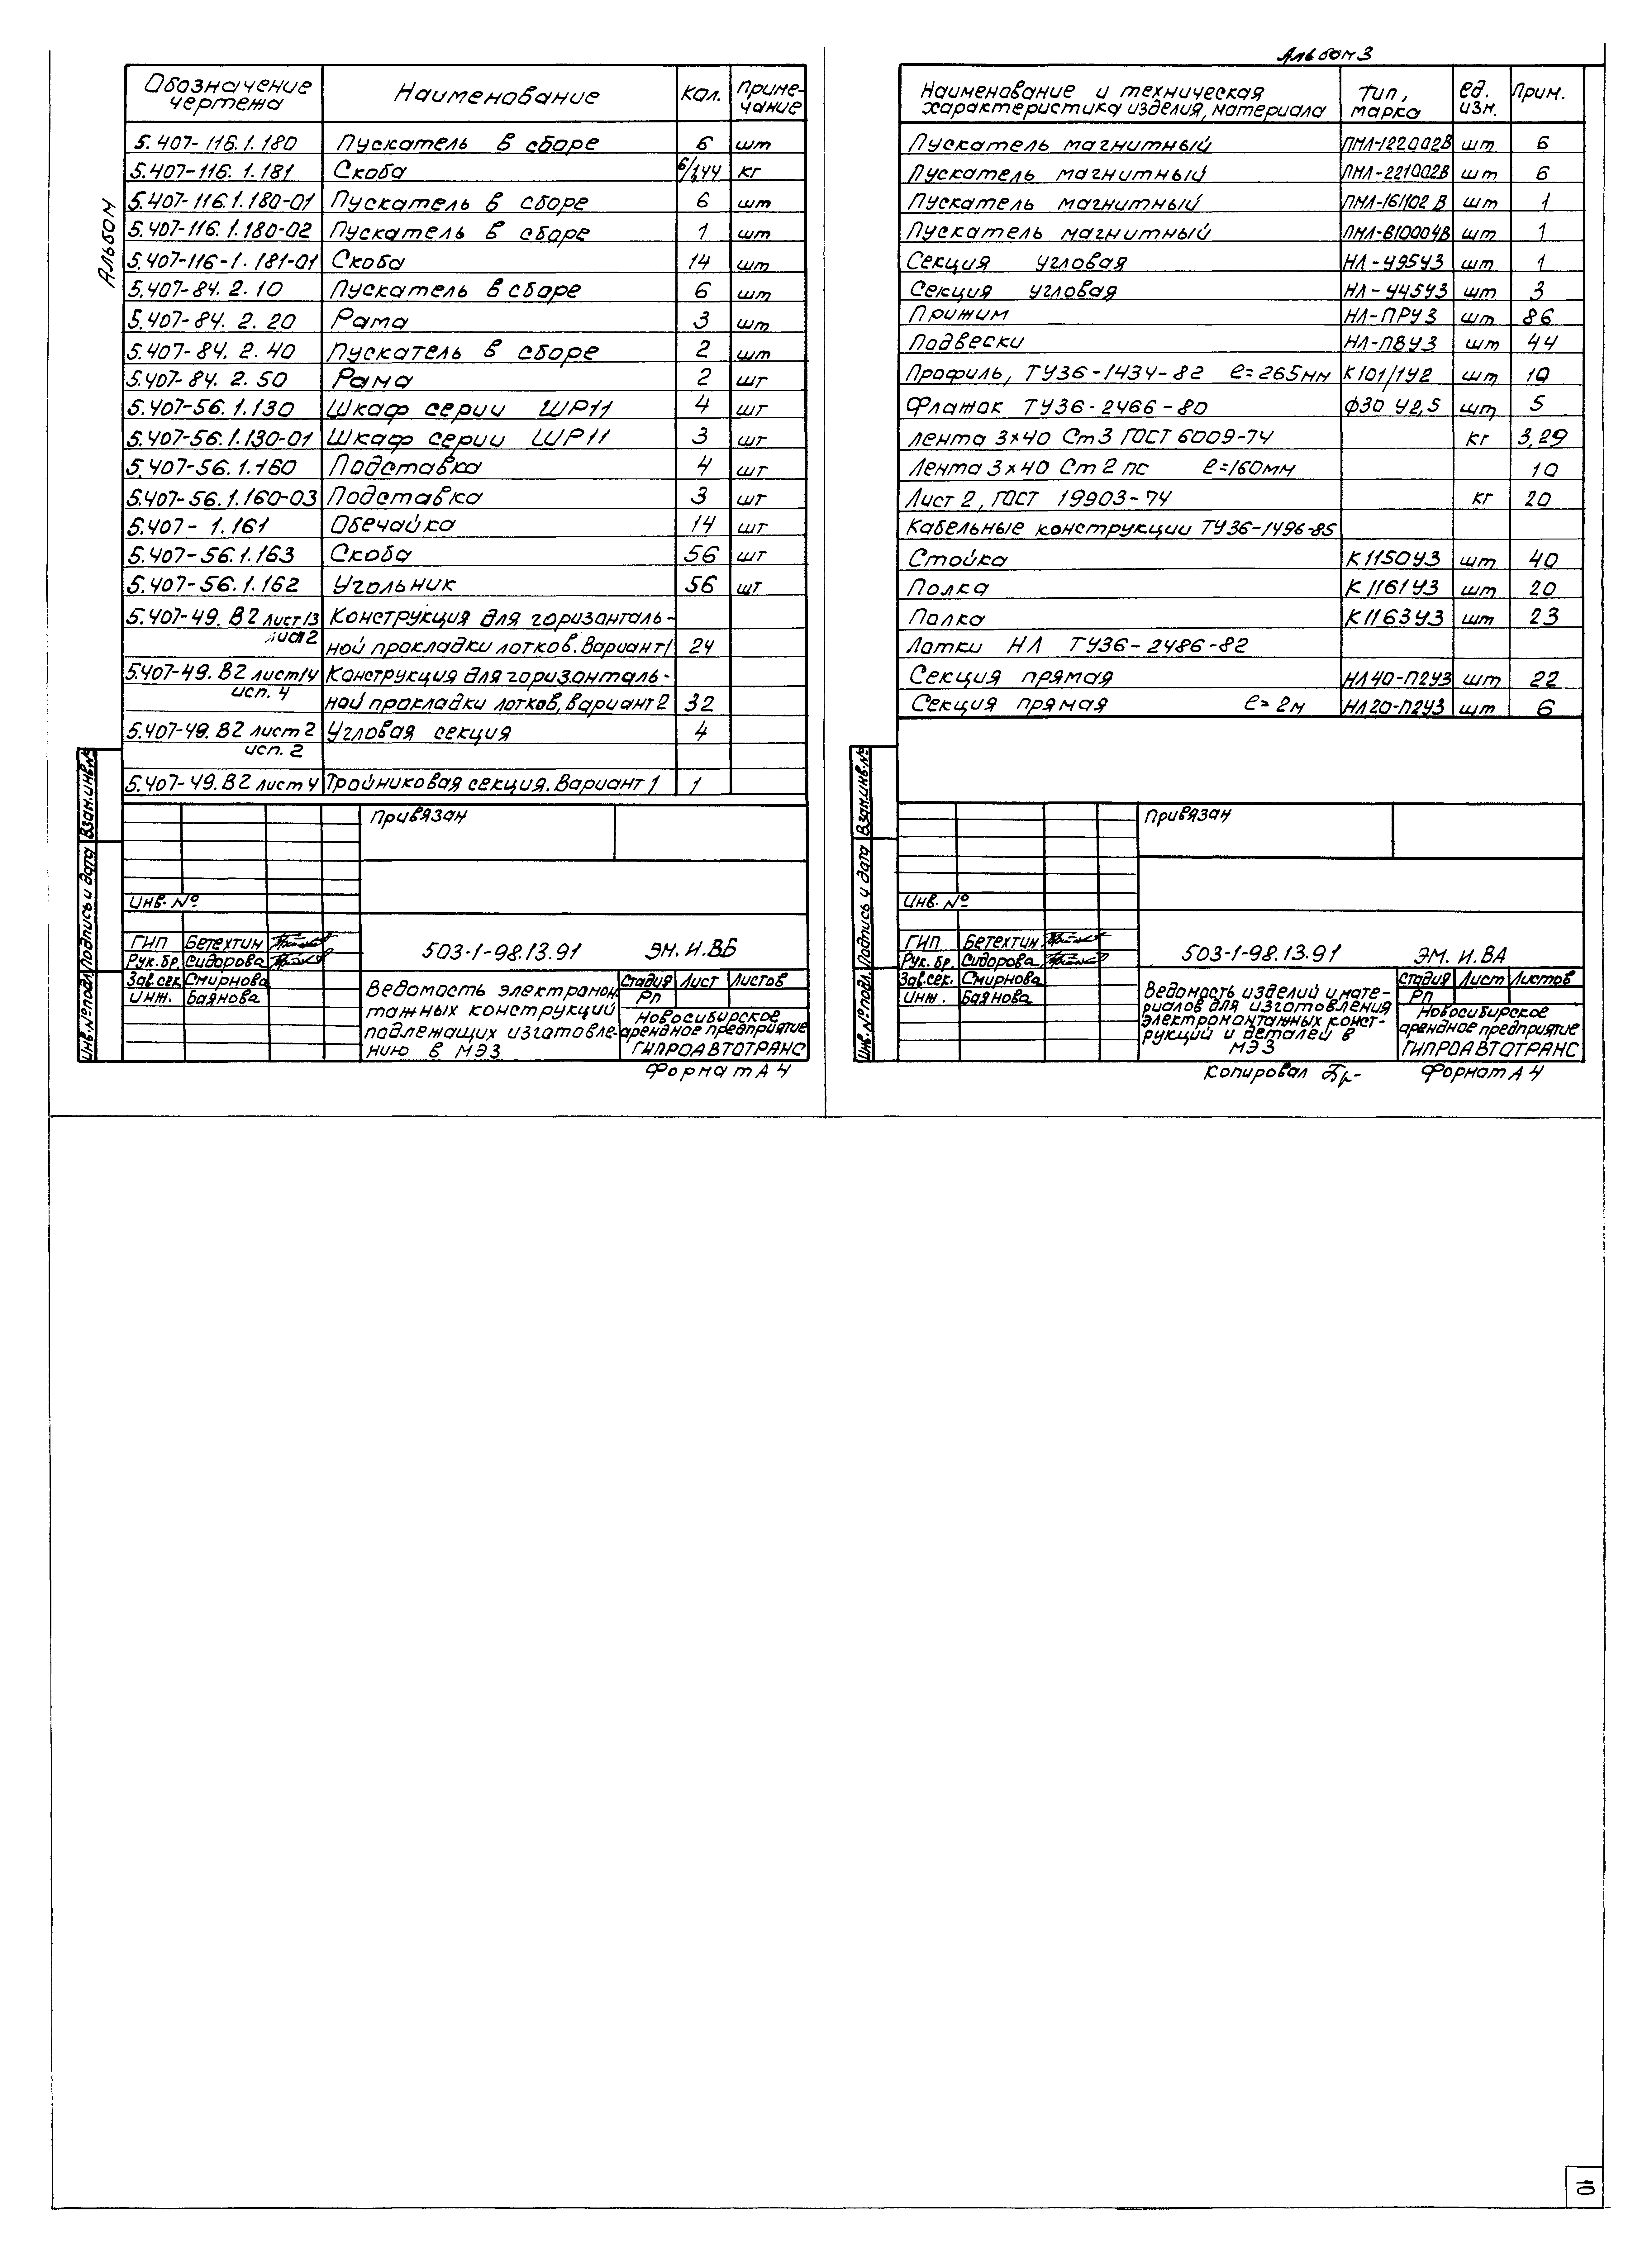 Альбом
Обозначение чертежа Наименование Кол. Примечание
5.407-116.1.180 Пускатель в сборе 6 шт
5.407-116.1.181 Скоба 6/1,44 кг
5.407-116.1.180-01 Пускатель в сборе 6 шт
5.407-116.1.180-02 Пускатель в сборе 1 шт
5.407-116-1.181-01 Скоба 14 шт
5.407-84.2.10 Пускатель в сборе 6 шт
5.407-84.2.20 Рама 3 шт
5.407-84.2.40 Пускатель в сборе 2 шт
5.407-84.2.50 Рама 2 шт
5.407-56.1.130 Шкаф серии ШР11 4 шт
5.407-56.1.130-01 Шкаф серии ШР11 3 шт
5.407-56.1.160 Подставка 4 шт
5.407-56.1.160-03 Подставка 3 шт
5.407- 1.161 Обечайка 14 шт
5.407-56.1.163 Скоба 56 шт
5.407-56.1.162 Угольник 56 шт
5.407-49.В2 лист13 Конструкция для горизонталь-
лист2 ной прокладки лотков. Вариант1 24
5.407-49.В2 лист14 Конструкция для горизонталь-
исп.4 ной прокладки лотков, вариант2 32
5.407-49.В2 лист2 Угловая секция 4
исп.2
5.407-49.В2 лист4 Тройниковая секция. Вариант1 1
Привязан
Инв. №
ГИП Бетехтин
Рук.бр. Сидорова
Зав.сек. Смирнова
Инж. Баянова
503-1-98.13.91 ЭМ.И.ВБ
Ведомость электромон
тажных конструкций
подлежащих изготовле-
нию в МЭЗ
Стадия Лист Листов
РП
Новосибирское
арендное предприятие
ГИПРОАВТОТРАНС
Формат А4
Взам.инв.№
Подпись и дата
Инв.№подл.
Альбом3
Наименование и техническая характеристика изделия, материала Тип, марка ед. изм. Прим.
Пускатель магнитный ПМЛ-122002В шт 6
Пускатель магнитный ПМЛ-221002В шт 6
Пускатель магнитный ПМЛ-161102В шт 1
Пускатель магнитный ПМЛ-810004В шт 1
Секция угловая НЛ-У95У3 шт 1
Секция угловая НЛ-У45У3 шт 3
Прижим НЛ-ПРУ3 шт 86
Подвески НЛ-ПВУ3 шт 44
Профиль, ТУ36-1434-82 ℓ=265мм К101/1У2 шт 10
Флажок ТУ36-2466-80 ф30 У2,5 шт 5
Лента 3×40 Ст3 ГОСТ 6009-74 кг 3,29
Лента 3×40 Ст2пс ℓ=160мм 10
Лист 2, ГОСТ 19903-74 кг 20
Кабельные конструкции ТУ36-1496-85
Стойка К1150У3 шт 40
Полка К1161У3 шт 20
Полка К1163У3 шт 23
Лотки НЛ ТУ36-2486-82
Секция прямая НЛ40-П2У3 шт 22
Секция прямая ℓ=2м НЛ20-П2У3 шт 6
Привязан
Инв. №
ГИП Бетехтин
Рук.бр. Сидорова
Зав.сек. Смирнова
Инж. Баянова
503-1-98.13.91 ЭМ.И.ВА
Ведомость изделий и мате-
риалов для изготовления
электромонтажных конст-
рукций и деталей в
МЭЗ
Стадия Лист Листов
РП
Новосибирское
арендное предприятие
ГИПРОАВТОТРАНС
Копировал Формат А4
Взам.инв.№
Подпись и дата
Инв.№подл.
10